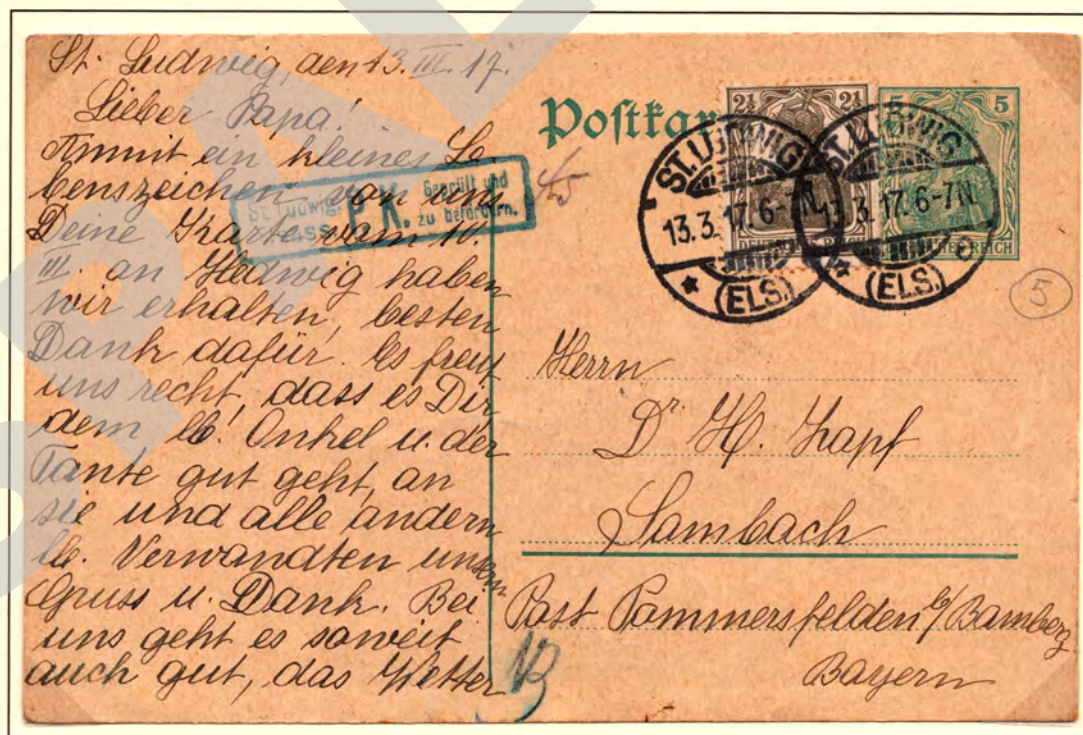 St. Ludwig, den 13. III. 17.
Lieber Papa!
Anmit ein kleines Le-
benszeichen von uns
Deine Karte vom 10.
III. an Hedwig haben
wir erhalten, besten
Dank dafür. Es freut
uns recht, dass es Dir
dem lb. Onkel u. der
Tante gut geht, an
sie und alle andern
lb. Verwandten unsern
Gruss u. Dank. Bei
uns geht es soweit
auch gut, das Wetter
St. Ludwig, P.K. Geprüft und
zu befördern.
Postkar
2½ 2½
DEUTSCHES REICH
5 5
DEUTSCHES REICH
ST. LUDWIG
13.3.17. 6-7N.
(ELS.)
ST. LUDWIG
13.3.17. 6-7N.
(ELS.)
c
5
Herrn
Dr. H. Zapf
Sambach
Post Pommersfelden b/Bamberg
Bayern